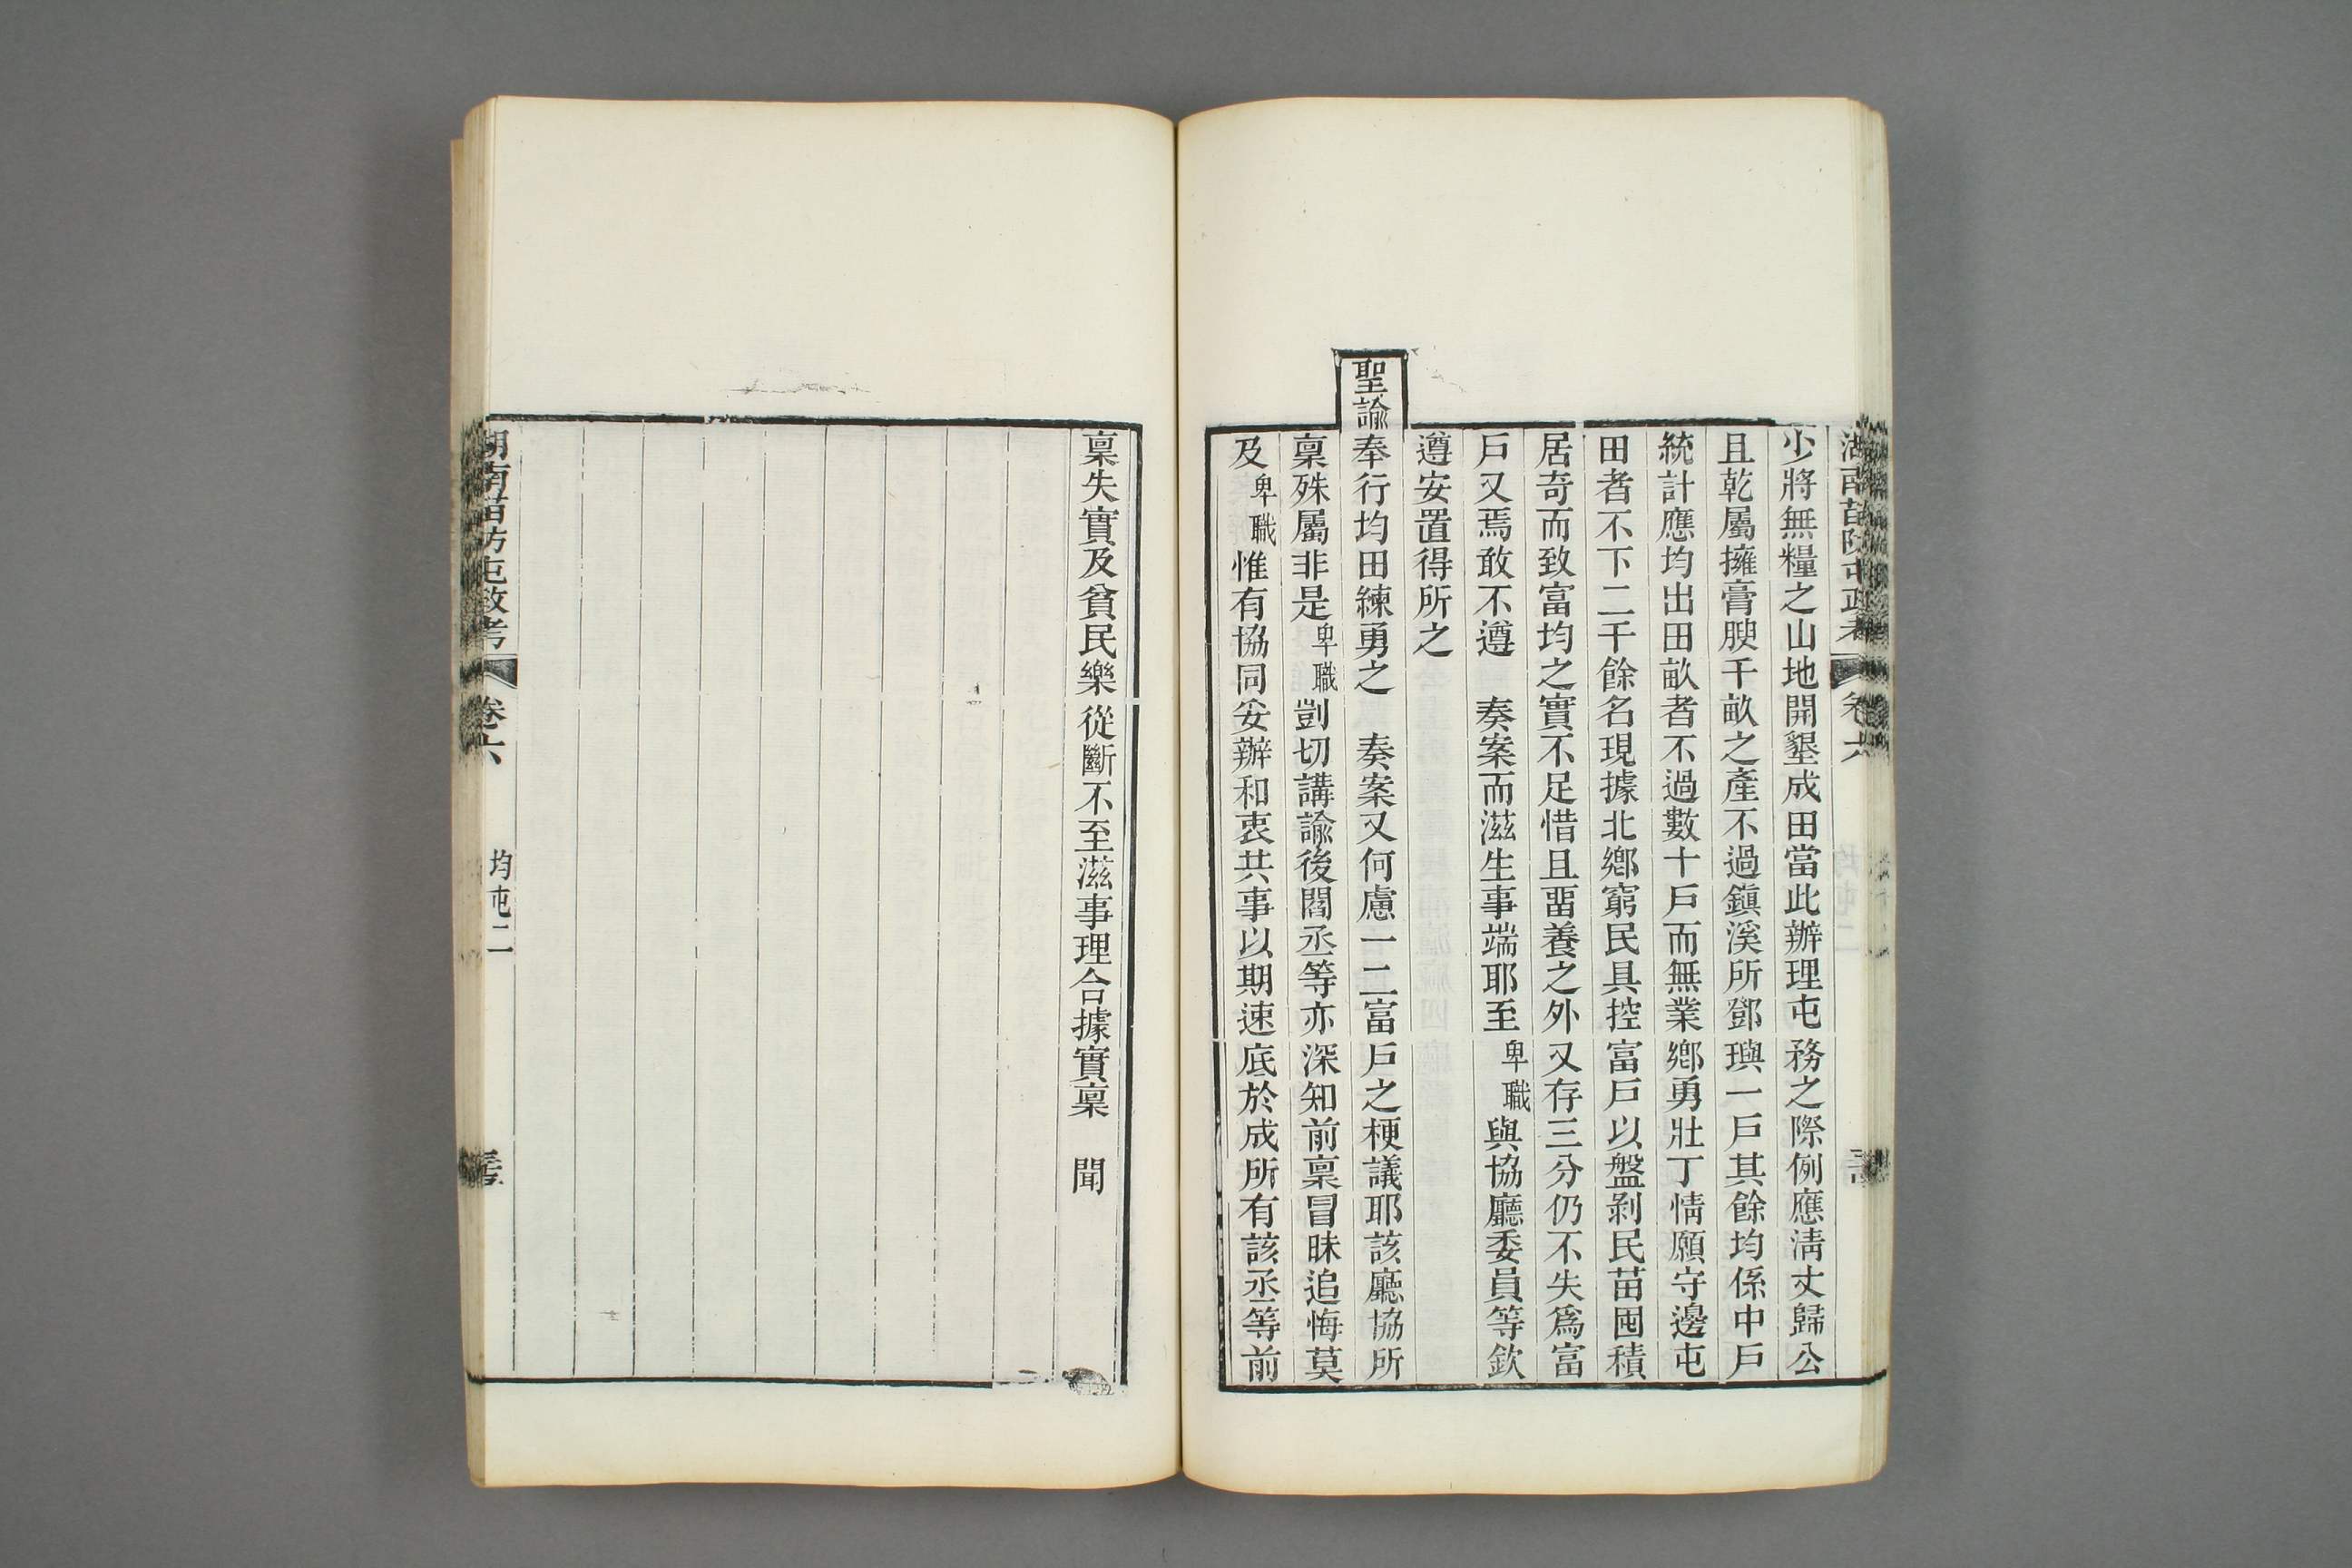 少將無糧之山地開墾成田當此辦理屯務之際例應淸丈歸公
且乾屬擁膏腴千畝之產不過鎭溪所鄧璵一戶其餘均係中戶
統計應均出田畝者不過數十戶而無業鄉勇壯丁情願守邊屯
田者不下二千餘名現據北鄉窮民具控富戶以盤剝民苗囤積
居奇而致富均之實不足惜且畱養之外又存三分仍不失爲富
戶又焉敢不遵 奏案而滋生事端耶至卑職與協廳委員等欽
遵安置得所之
聖諭奉行均田練勇之 奏案又何慮一二富戶之梗議耶該廳協所
稟殊屬非是卑職剴切講諭後閻丞等亦深知前稟冒昧追悔莫
及卑職惟有協同妥辦和衷共事以期速底於成所有該丞等前
稟失實及貧民樂從斷不至滋事理合據實稟 聞
湖南苗防屯政考 卷六 均屯二